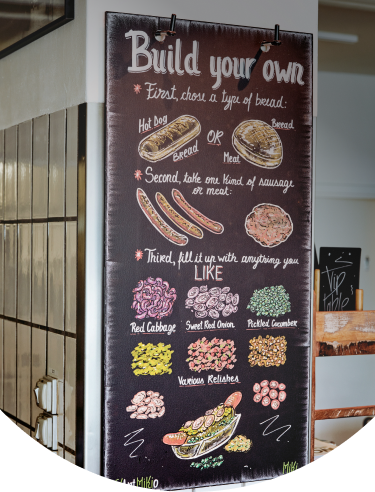 Build your own
* First, chose a type of bread:
Hot Dog Bread
OR
Bread Meat
* Second, take one kind of sausage
or meat:
* Third, fill it up with anything you
LIKE
Red Cabbage Sweet Red Onion Pickled Cucumber
Various Relishes